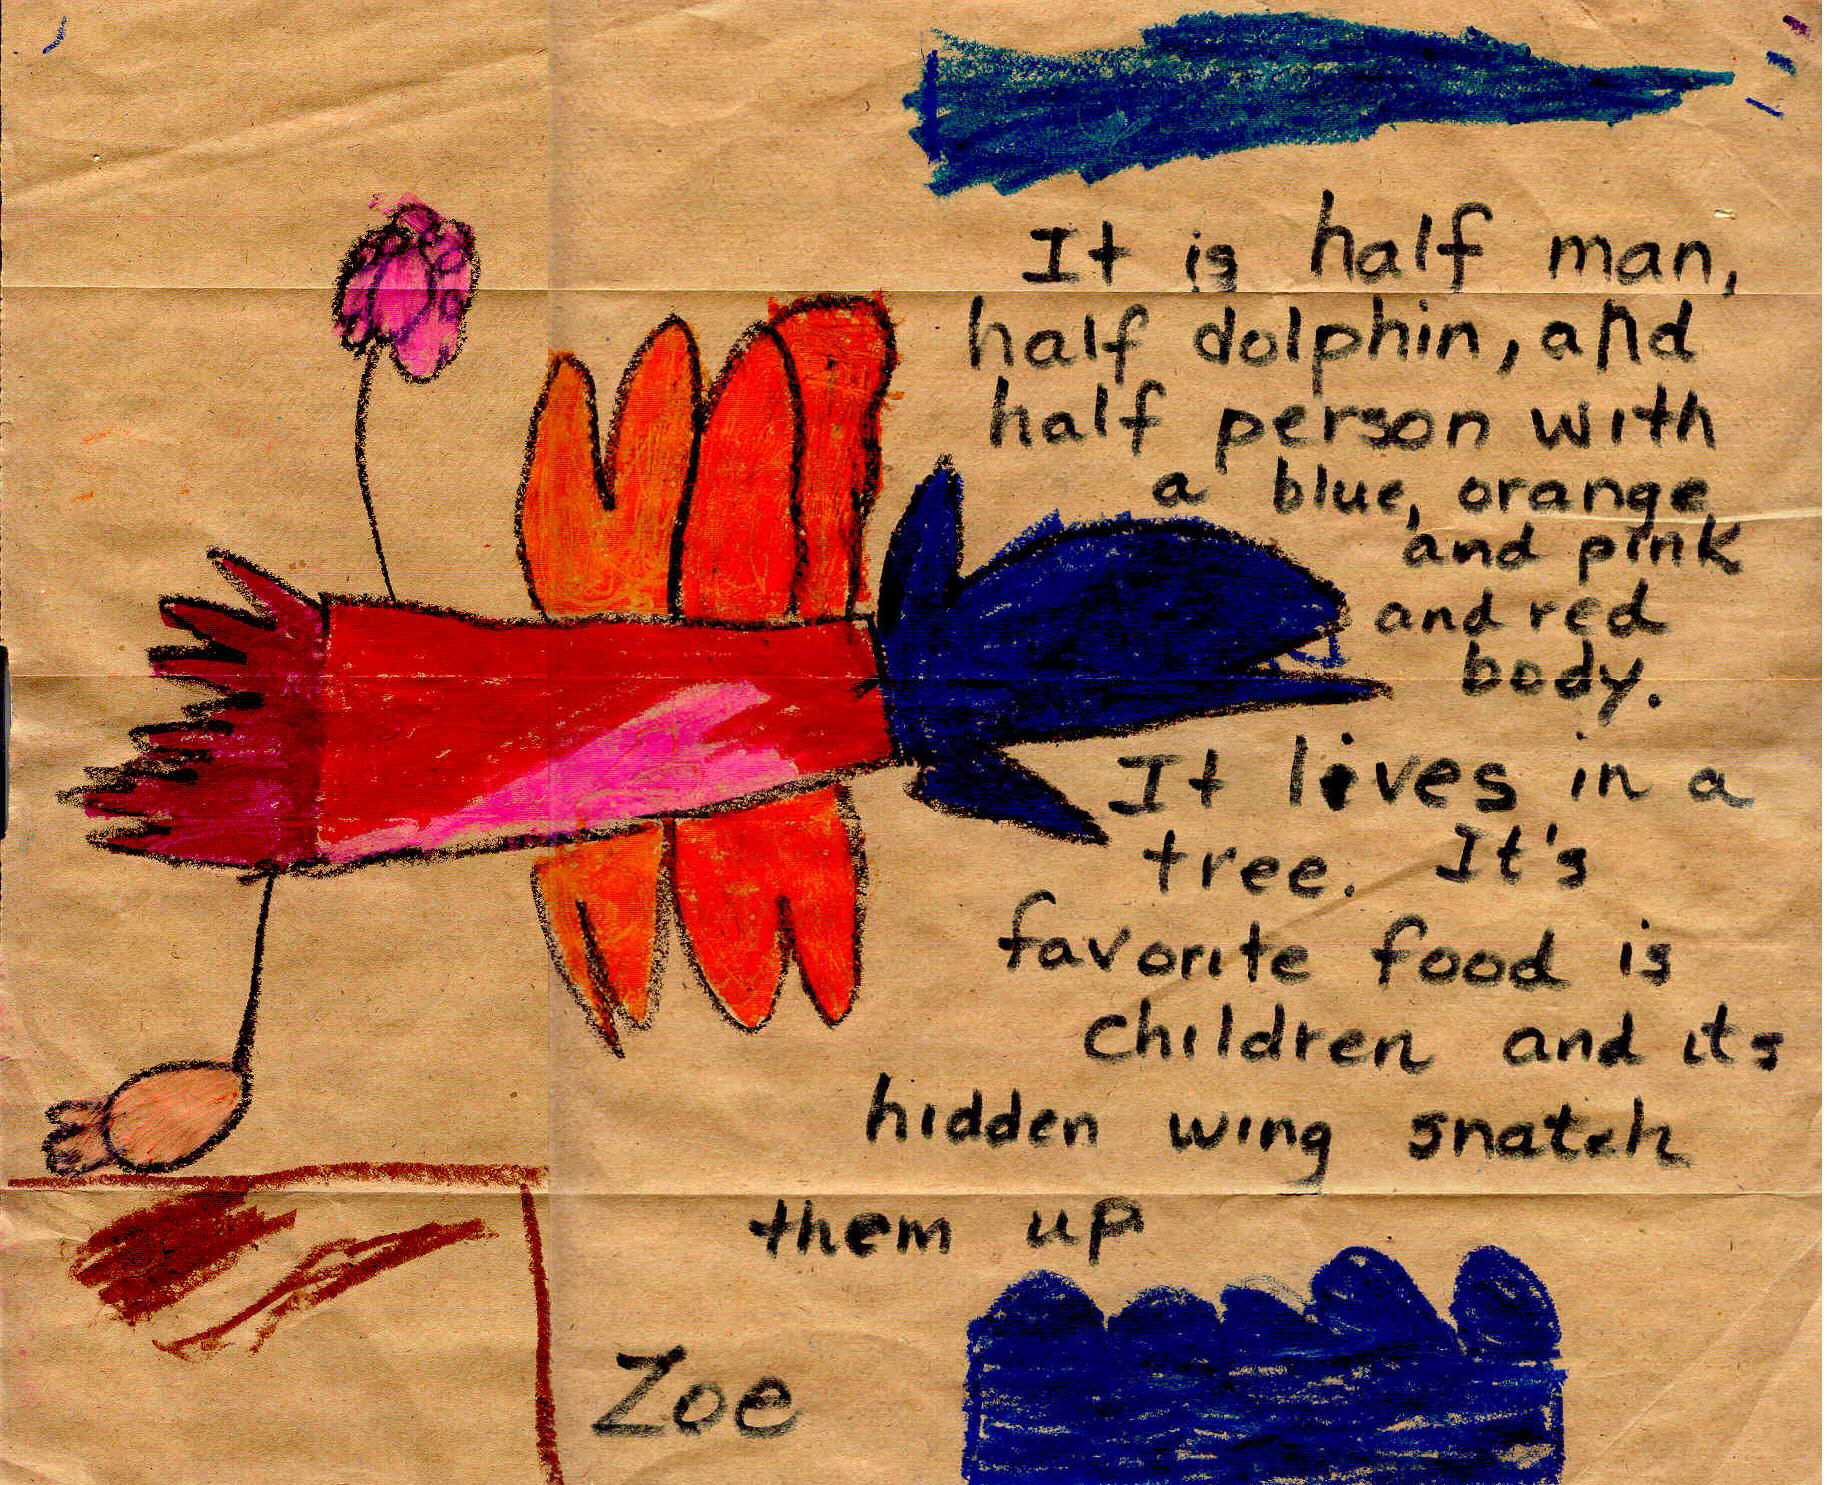 It is half man,
half dolphin, and
half person with
a blue, orange
and pink
and red
body.
It lives in a
tree. It's
favorite food is
children and its
hidden wing snatch
them up
Zoe